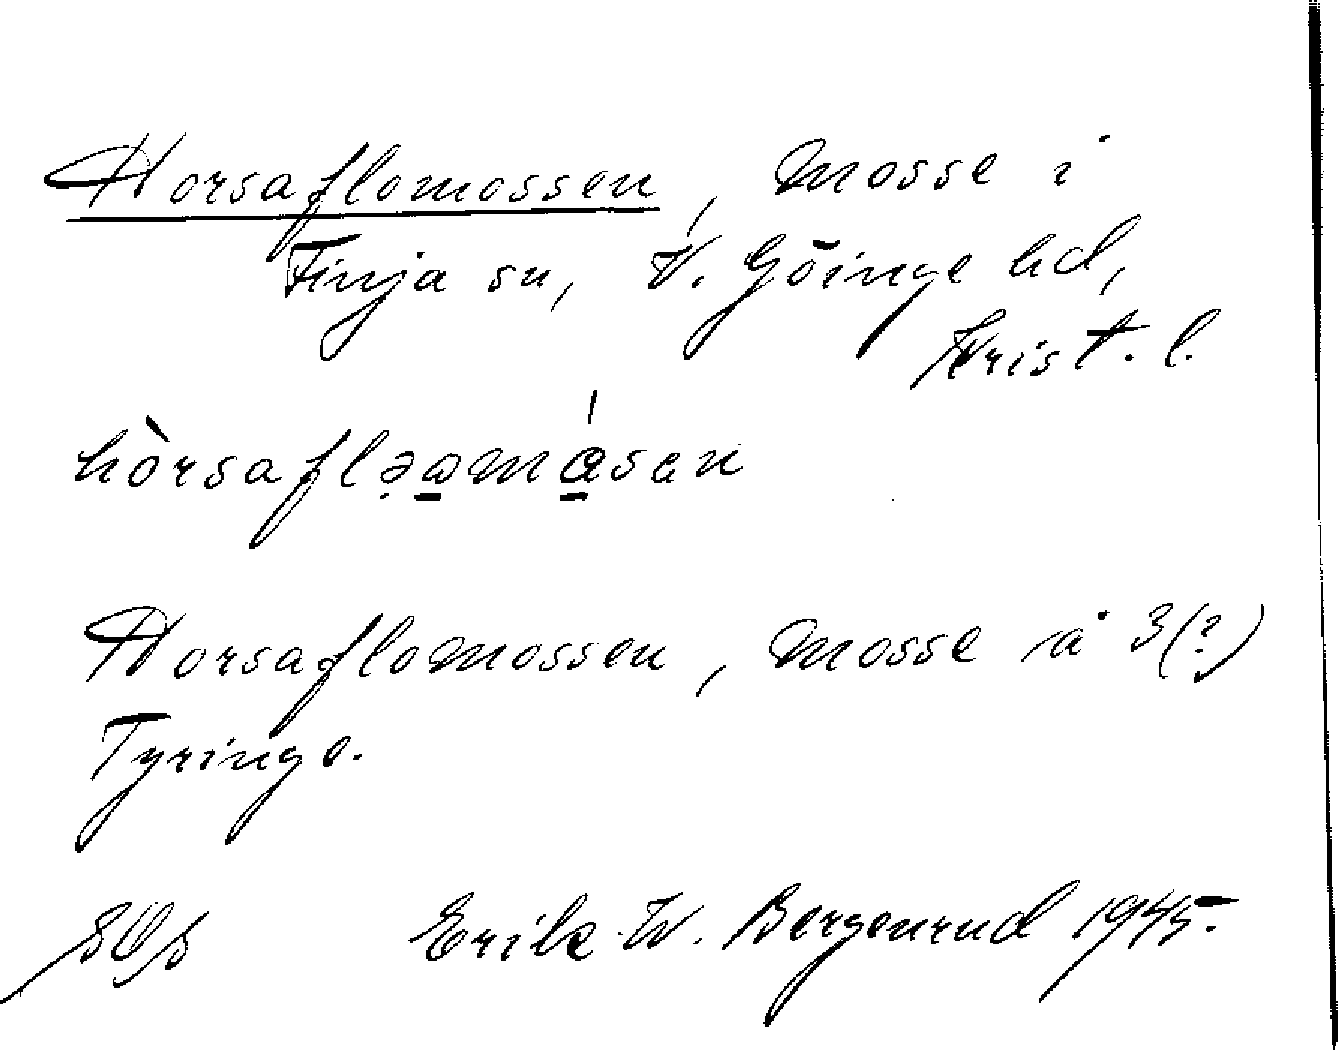 Horsaflomossen, mosse i
Finja sn, V. Göinge hd,
Krist. l.
hòrsafləωmásen
Horsaflomossen, mosse å 3(?)
Tyringe.
Erik W. Bergenrud 1945.